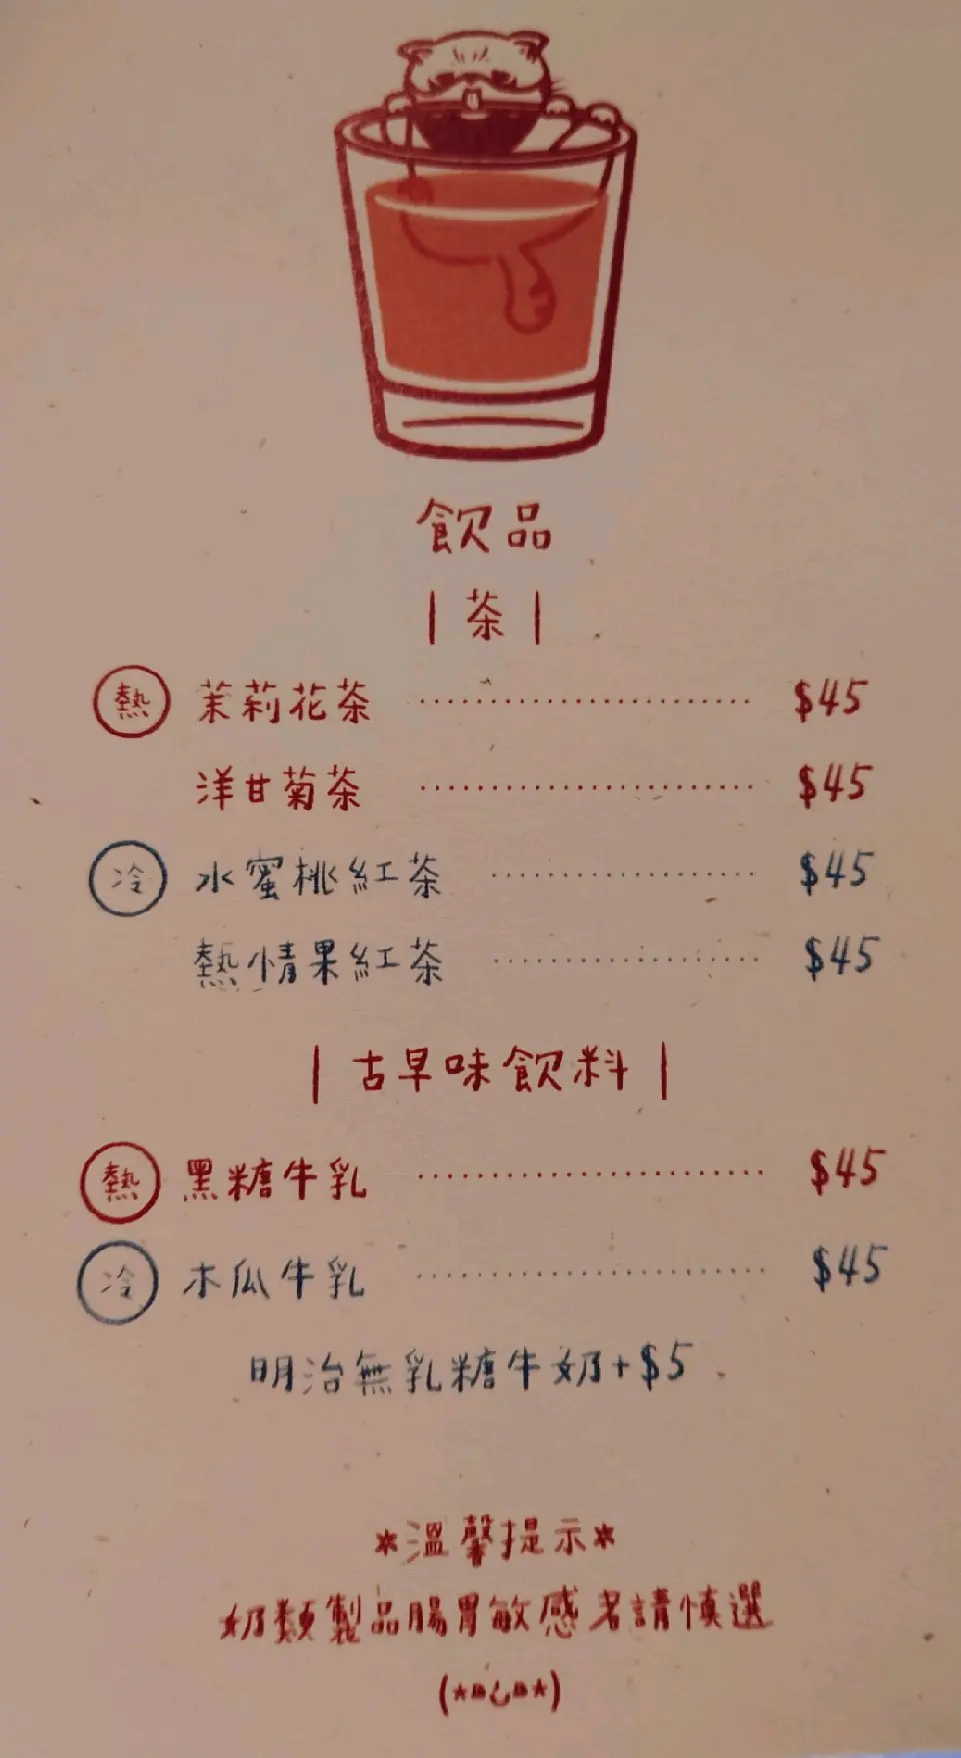 飲品
|茶|
熱 茉莉花茶 $45
洋甘菊茶 $45
冷 水蜜桃紅茶 $45
熱情果紅茶 $45
|古早味飲料|
熱 黑糖牛乳 $45
冷 木瓜牛乳 $45
明治無乳糖牛奶+$5
*溫馨提示*
奶類製品腸胃敏感者請慎選